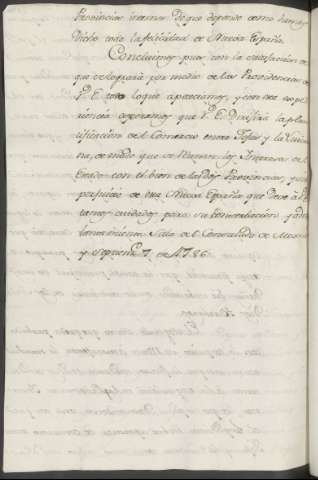 Provincias internas de que depende como hemos
dicho toda la felicidad de Nueva España.
Concluimos pues con la satisfaccion de
que se logrará por medio de las Providencias de
V. E. todo lo que apetecemos, y con esta
esperamos que V. E. dirijirá la pla
nificacion del Comercio entre Tejas y la Luicia
na, de modo que se unan los Intereses del
Estado con el bien de las dos Provincias, y sin
perjuicio de esta Nueva España que deve á V. E.
tantos cuidados para su conservacion y ade
lantamiento. Sala del Consulado de Mexico
y Septiembre 7 de 1786.